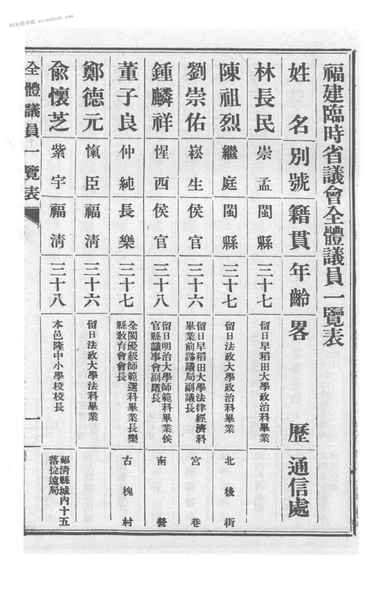 福建臨時省議會全體議員一覽表
姓名 別號 籍貫 年齡 畧歷 通信處
林長民 崇孟 閩縣 三十七 留日早稻田大學政治科畢業
陳祖烈 繼庭 閩縣 三十七 留日法政大學政治科畢業 北後街
劉崇佑 崧生 侯官 三十六 留日早稻田大學法律經濟科畢業前諮議局副議長 宮巷
鍾麟祥 惺西 侯官 三十八 留日明治大學師範科畢業侯官縣議事會副議長 南營
董子良 仲純 長樂 三十七 全閩優級師範選科畢業長樂縣教育會會長 古槐村
鄭德元 福清 三十六 留日法政大學法科畢業
俞懷芝 紫宇 福清 三十八 本邑隆中小學校校長 福清縣城內十五落位遠局
全體議員一覽表
一